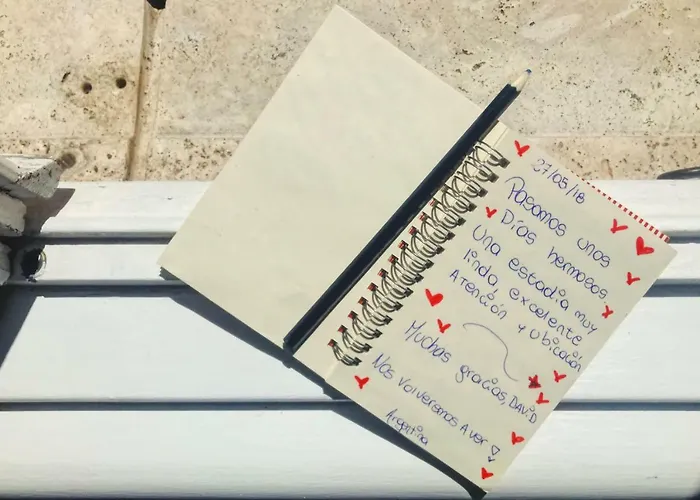 27/05/18
Pasamos unos
Días hermosos.
Una estadia muy
linda, excelente
Atención y ubicación
Muchas gracias, DAVID
Nos volveremos A ver
Argentina